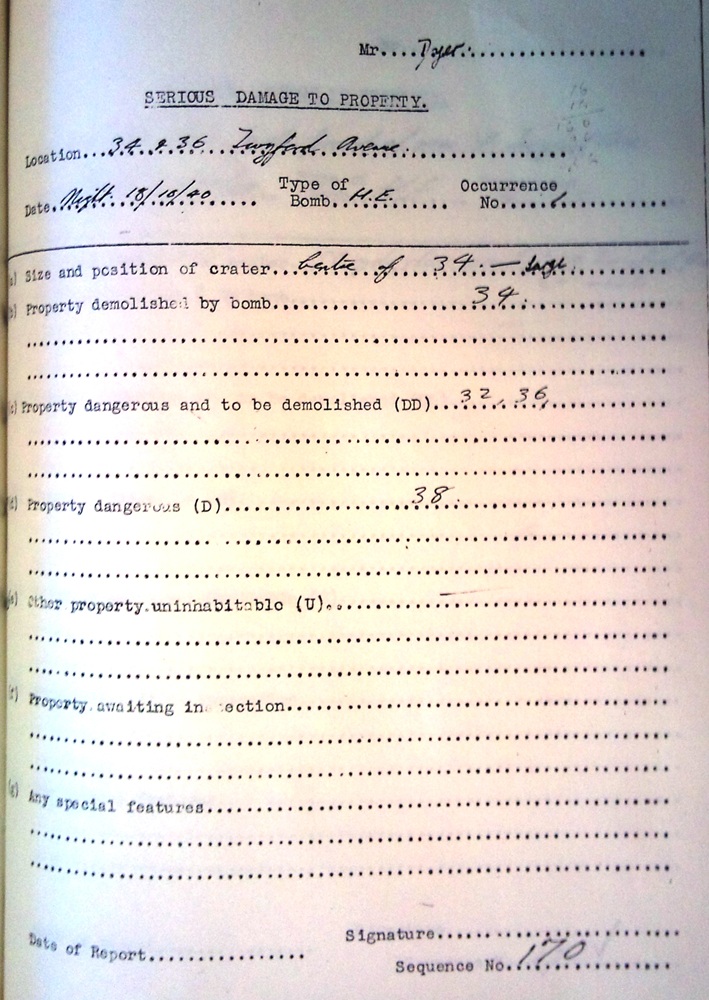 Mr....Dyer.................
SERIOUS DAMAGE TO PROPERTY.
Location...34 & 36 Twyford Avenue.................
Date.Night: 18/10/40............ Type of Bomb..H.E........ Occurrence No......
(a) Size and position of crater...Centre of 34. — large.............
(b) Property demolished by bomb....................34.................
(c) Property dangerous and to be demolished (DD)...32, 36,..............
(d) Property dangerous (D)....................38...................
(e) Other property uninhabitable (U)............—..................
(f) Property awaiting in ection.................................
(g) Any special features.......................................
Signature........................
Date of Report................
Sequence No..170..........